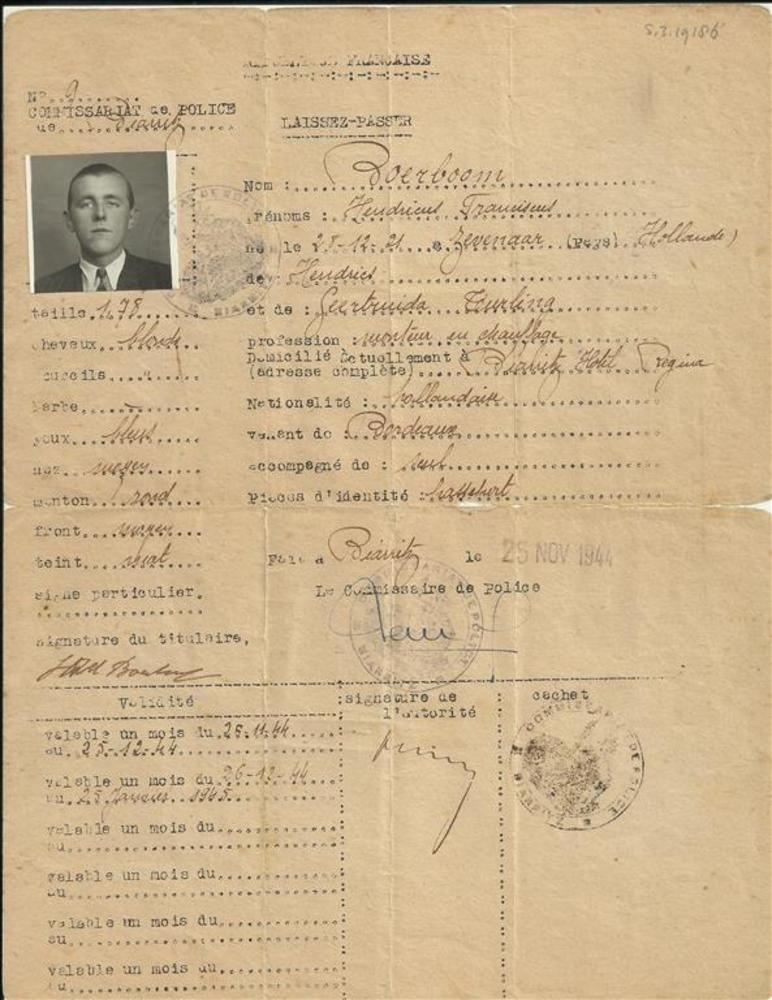 S.3.19186
REPUBLIQUE FRANCAISE
N° 9
COMMISSARIAT de POLICE
de Biarritz
LAISSEZ-PASSER
Nom : Boerboom
Prénoms : Hendricus Franciscus
né le 25-12-21 à Zevenaar (Pays) Hollande)
de Hendrics
et de : Geertruida
profession monteur en chauffage
Domicilié actuellement à Biarritz Hôtel Regina
(adresse complète)
Nationalité : hollandaise
venant de : Bordeaux
accompagné de : seul
Pièces d'identité :
taille. 1,78
cheveux. blonds
sourcils. "
barbe. -
yeux. bleus
nez. moyen
menton. rond
front. moyen
teint. mat
signe particulier.
signature du titulaire,
Fait à Biarritz le 25 NOV 1944
Le Commissaire de Police
COMMISSARIAT DE POLICE
BIARRITZ
Validité
signature de
l'autorité
cachet
valable un mois du 26.11.44
au 25-12-44
valable un mois du 26-12-44
au 25 Janvier 1945
valable un mois du
au
valable un mois du
au
valable un mois du
au
valable un mois du
au
COMMISSARIAT DE POLICE
BIARRITZ